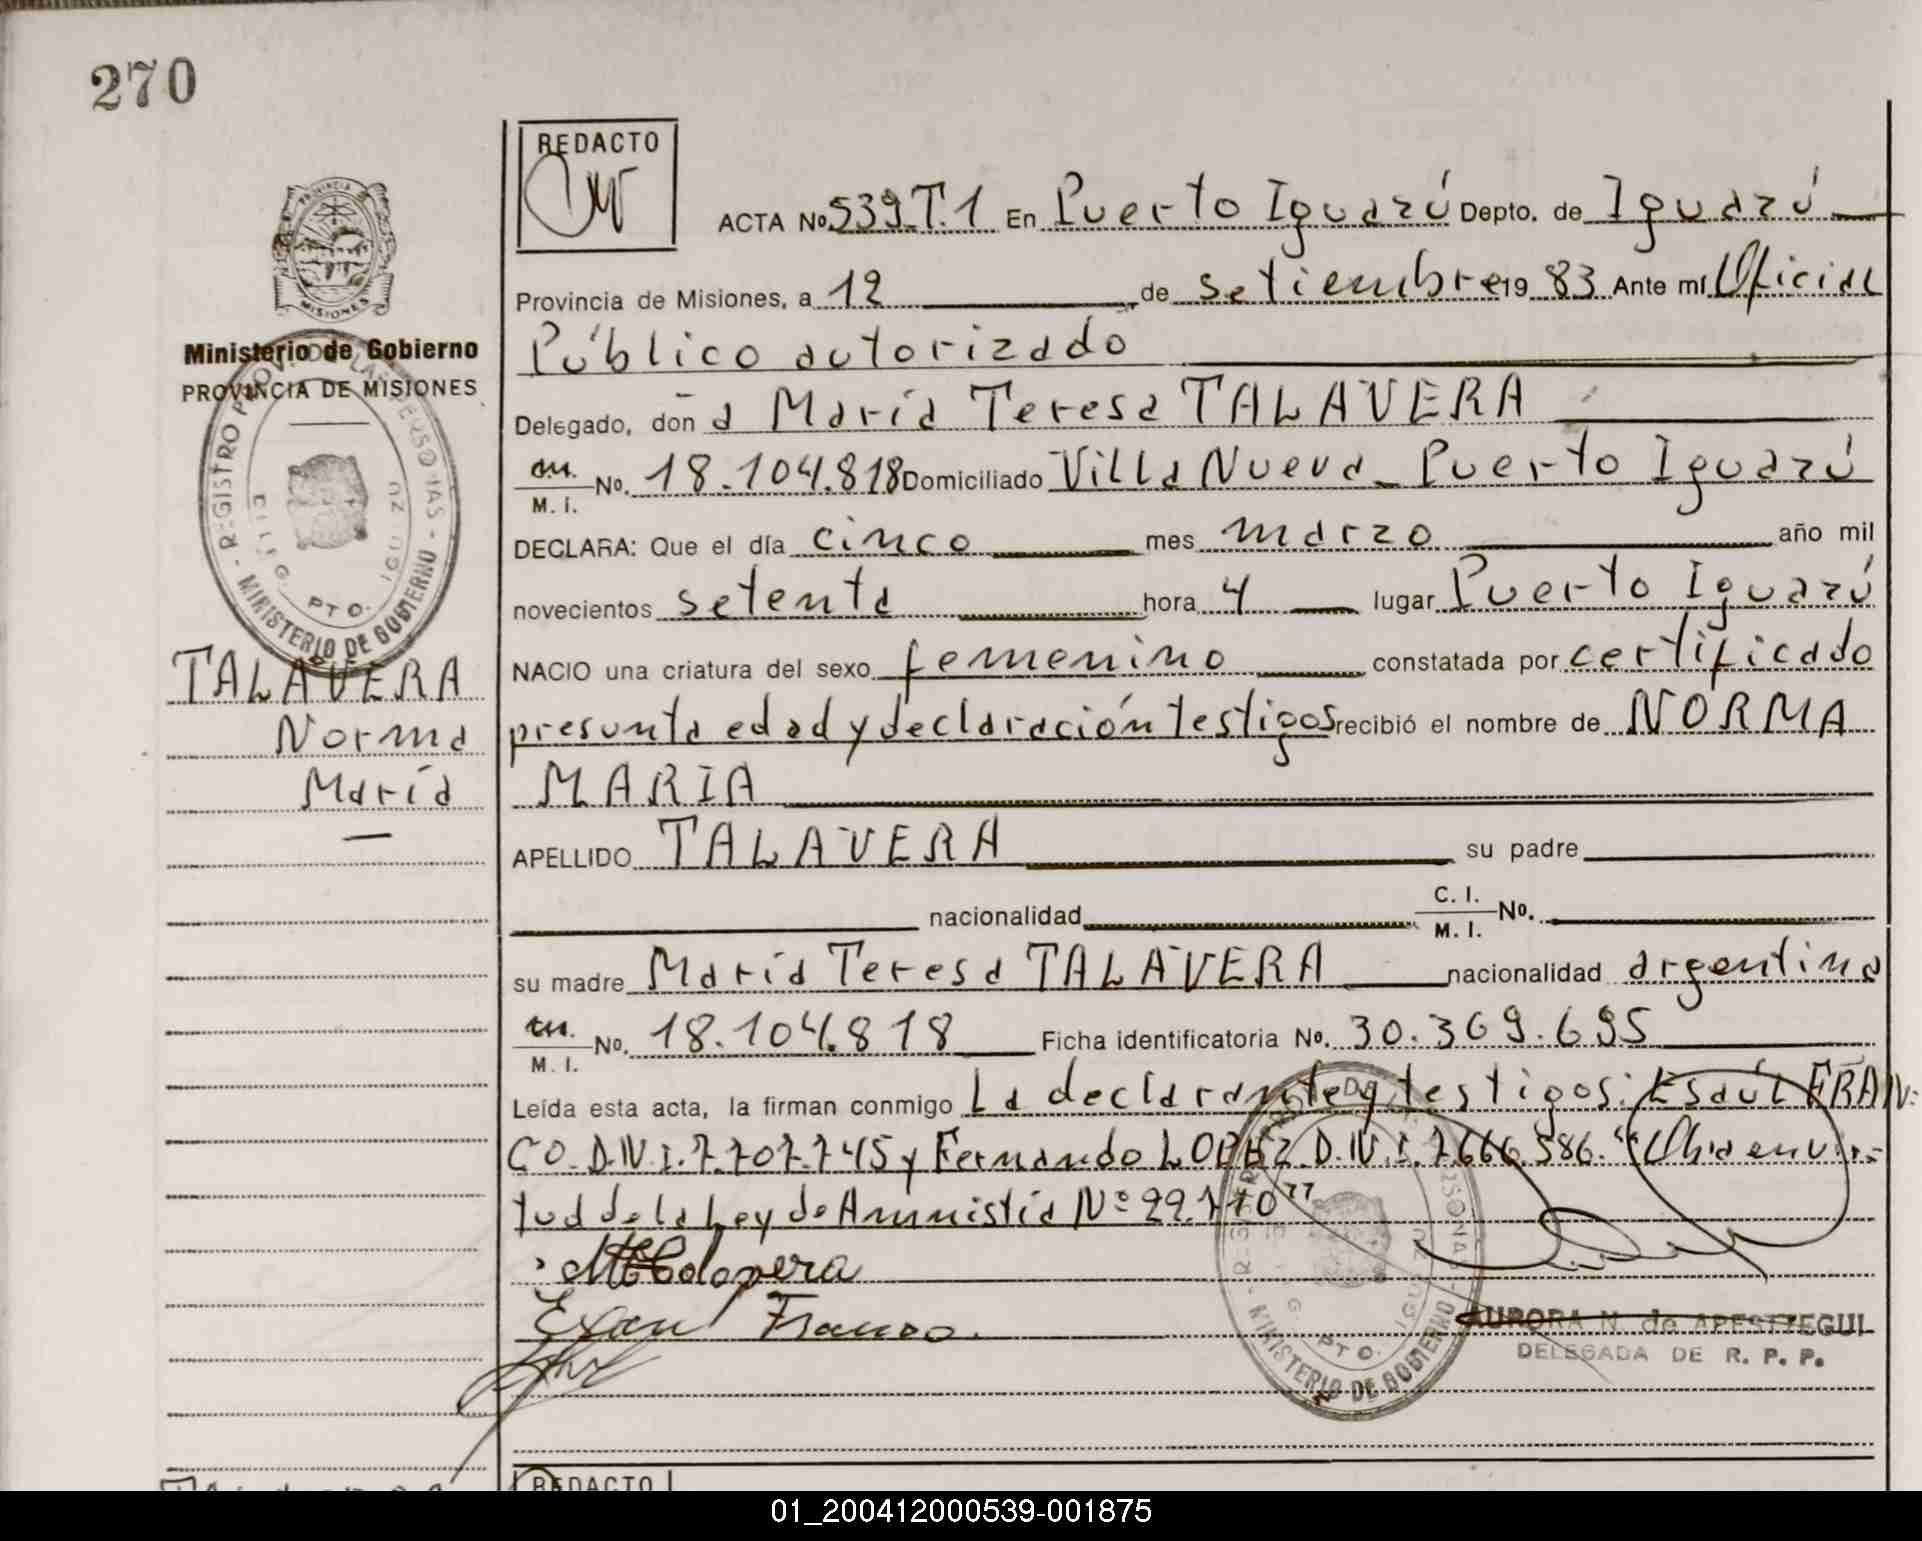 270
REDACTO
ACTA Nº 539.T.1 En Puerto Iguazú Depto. de Iguazú
Provincia de Misiones, a 12 de setiembre 19 83 Ante mí Oficial
Público autorizado
Ministerio de Gobierno
PROVINCIA DE MISIONES
Delegado, doña María Teresa TALAVERA
M. I. No. 18.104.818 Domiciliado Villa Nueva - Puerto Iguazú
DECLARA: Que el día cinco mes marzo año mil
novecientos setenta hora 4 lugar Puerto Iguazú
NACIO una criatura del sexo femenino constatada por certificado
TALAVERA
presunta edad y declaración testigos recibió el nombre de NORMA
Norma
MARIA
María
APELLIDO TALAVERA su padre
nacionalidad C. I. M. I. No.
su madre María Teresa TALAVERA nacionalidad argentina
M. I. No. 18.104.818 Ficha identificatoria No. 30.369.695
Leída esta acta, la firman conmigo La declarante y testigos: Esaúl FRAN-
CO. D.N.I. 7.707.745 y Fernando LOPEZ D.N.I. 7.666.586. "Ohia en vir-
tud de la Ley de Amnistía Nº 22.770"
Franco
AURORA N. de APESTEGUI
DELEGADA DE R. P. P.
MINISTERIO DE GOBIERNO
REDACTO
01_200412000539-001875